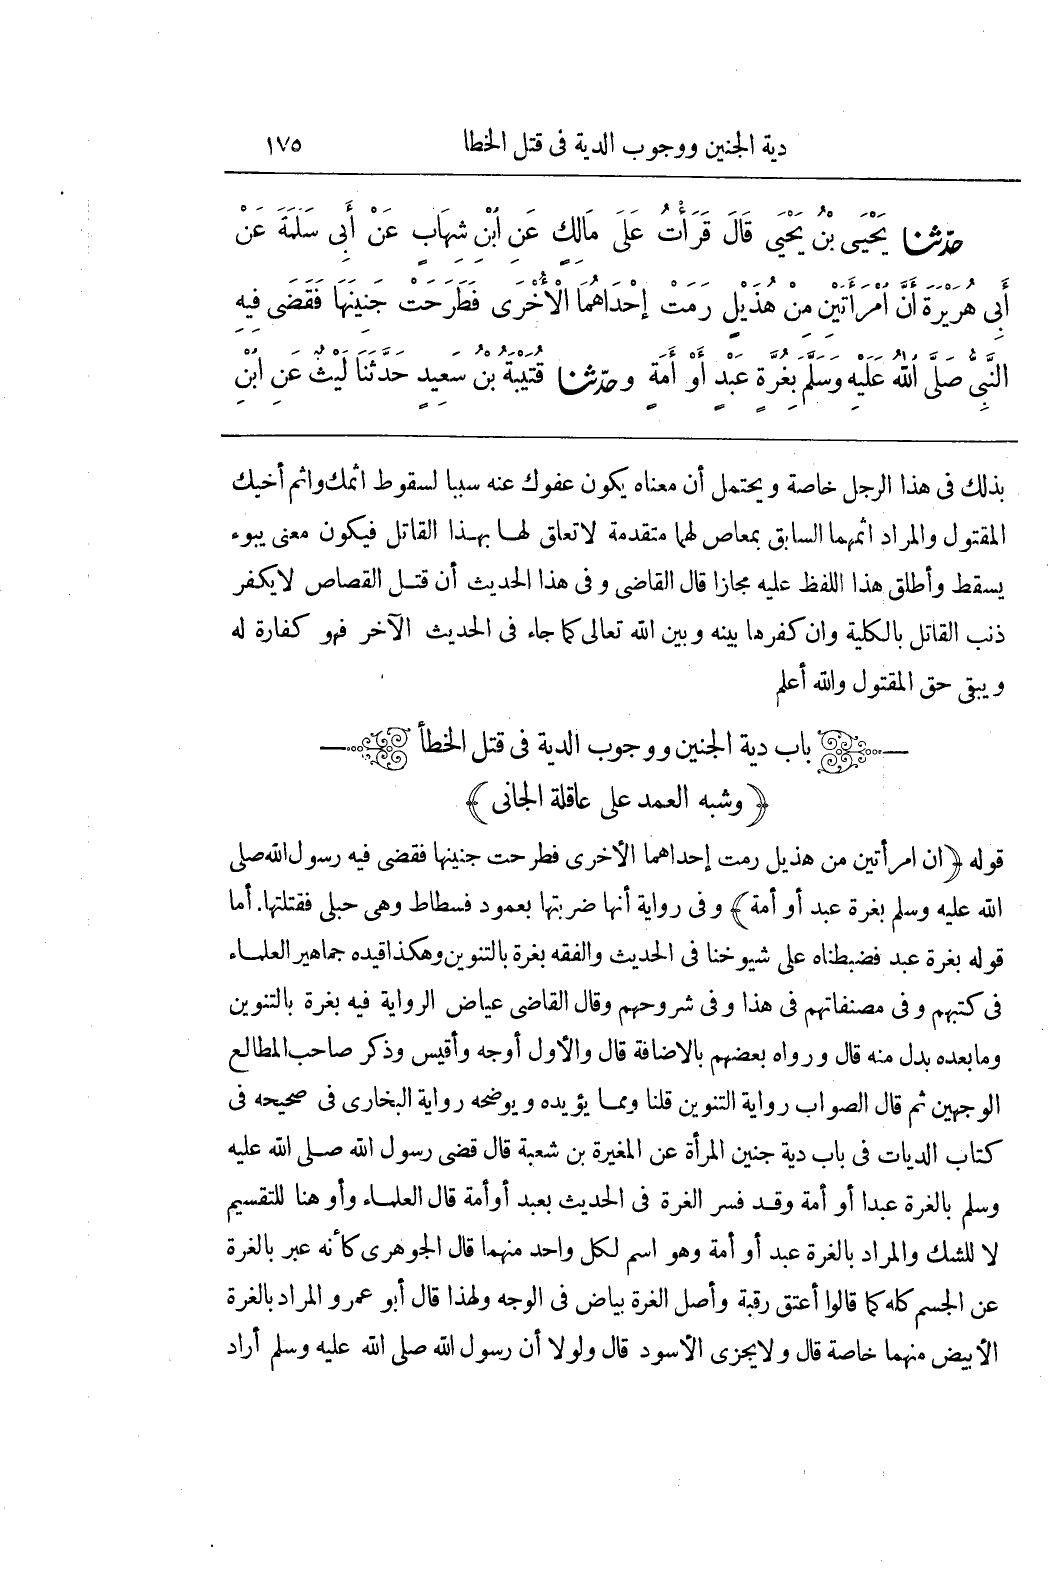 دية الجنين ووجوب الدية فى قتل الخطا ١٧٥
حدّثنا يَحْيَى بْنُ يَحْيَى قَالَ قَرَأْتُ عَلَى مَالِكٍ عَنِ ابْنِ شِهَابٍ عَنْ أَبِى سَلَمَةَ عَنْ
أَبِى هُرَيْرَةَ أَنَّ امْرَأَتَيْنِ مِنْ هُذَيْلٍ رَمَتْ إِحْدَاهُمَا الْأُخْرَى فَطَرَحَتْ جَنِينَهَا فَقَضَى فِيهِ
النَّبِىُّ صَلَّى اللهُ عَلَيْهِ وَسَلَّمَ بِغُرَّةٍ عَبْدٍ أَوْ أَمَةٍ وحدّثنا قُتَيْبَةُ بْنُ سَعِيدٍ حَدَّثَنَا لَيْثٌ عَنِ ابْنِ
بذلك فى هذا الرجل خاصة ويحتمل أن معناه يكون عفوك عنه سببا لسقوط اثمك واثم أخيك
المقتول والمراد اثمهما السابق بمعاص لهما متقدمة لاتعلق لهـا بهـذا القاتل فيكون معنى يبوء
يسقط وأطلق هذا اللفظ عليه مجازا قال القاضى وفى هذا الحديث أن قتـل القصاص لايكفر
ذنب القاتل بالكلية وان كفرها بينه وبين الله تعالى كما جاء فى الحديث الآخر فهو كفارة له
ويبقى حق المقتول والله أعلم
باب دية الجنين ووجوب الدية فى قتل الخطأ
﴿وشبه العمد على عاقلة الجانى﴾
قوله ﴿ان امرأتين من هذيل رمت إحداهما الأخرى فطرحت جنينها فقضى فيه رسول الله صلى
الله عليه وسلم بغرة عبد أو أمة﴾ وفى رواية أنها ضربتها بعمود فسطاط وهى حبلى فقتلتها. أما
قوله بغرة عبد فضبطناه على شيوخنا فى الحديث والفقه بغرة بالتنوين وهكذا قيده جماهير العلمـاء
فى كتبهم وفى مصنفاتهم فى هذا وفى شروحهم وقال القاضى عياض الرواية فيه بغرة بالتنوين
ومابعده بدل منه قال ورواه بعضهم بالاضافة قال والأول أوجه وأقيس وذكر صاحب المطالع
الوجهين ثم قال الصواب رواية التنوين قلنا وممـا يؤيده ويوضحه رواية البخارى فى صحيحه فى
كتاب الديات فى باب دية جنين المرأة عن المغيرة بن شعبة قال قضى رسول الله صـلى الله عليه
وسلم بالغرة عبدا أو أمة وقـد فسر الغرة فى الحديث بعبد أوأمة قال العلمـاء وأو هنا للتقسيم
لا للشك والمراد بالغرة عبد أو أمة وهو اسم لكل واحد منهما قال الجوهرى كأنه عبر بالغرة
عن الجسم كله كما قالوا أعتق رقبة وأصل الغرة بياض فى الوجه ولهذا قال أبو عمرو المراد بالغرة
الأبيض منهما خاصة قال ولايجزى الأسود قال ولولا أن رسول الله صلى الله عليه وسلم أراد